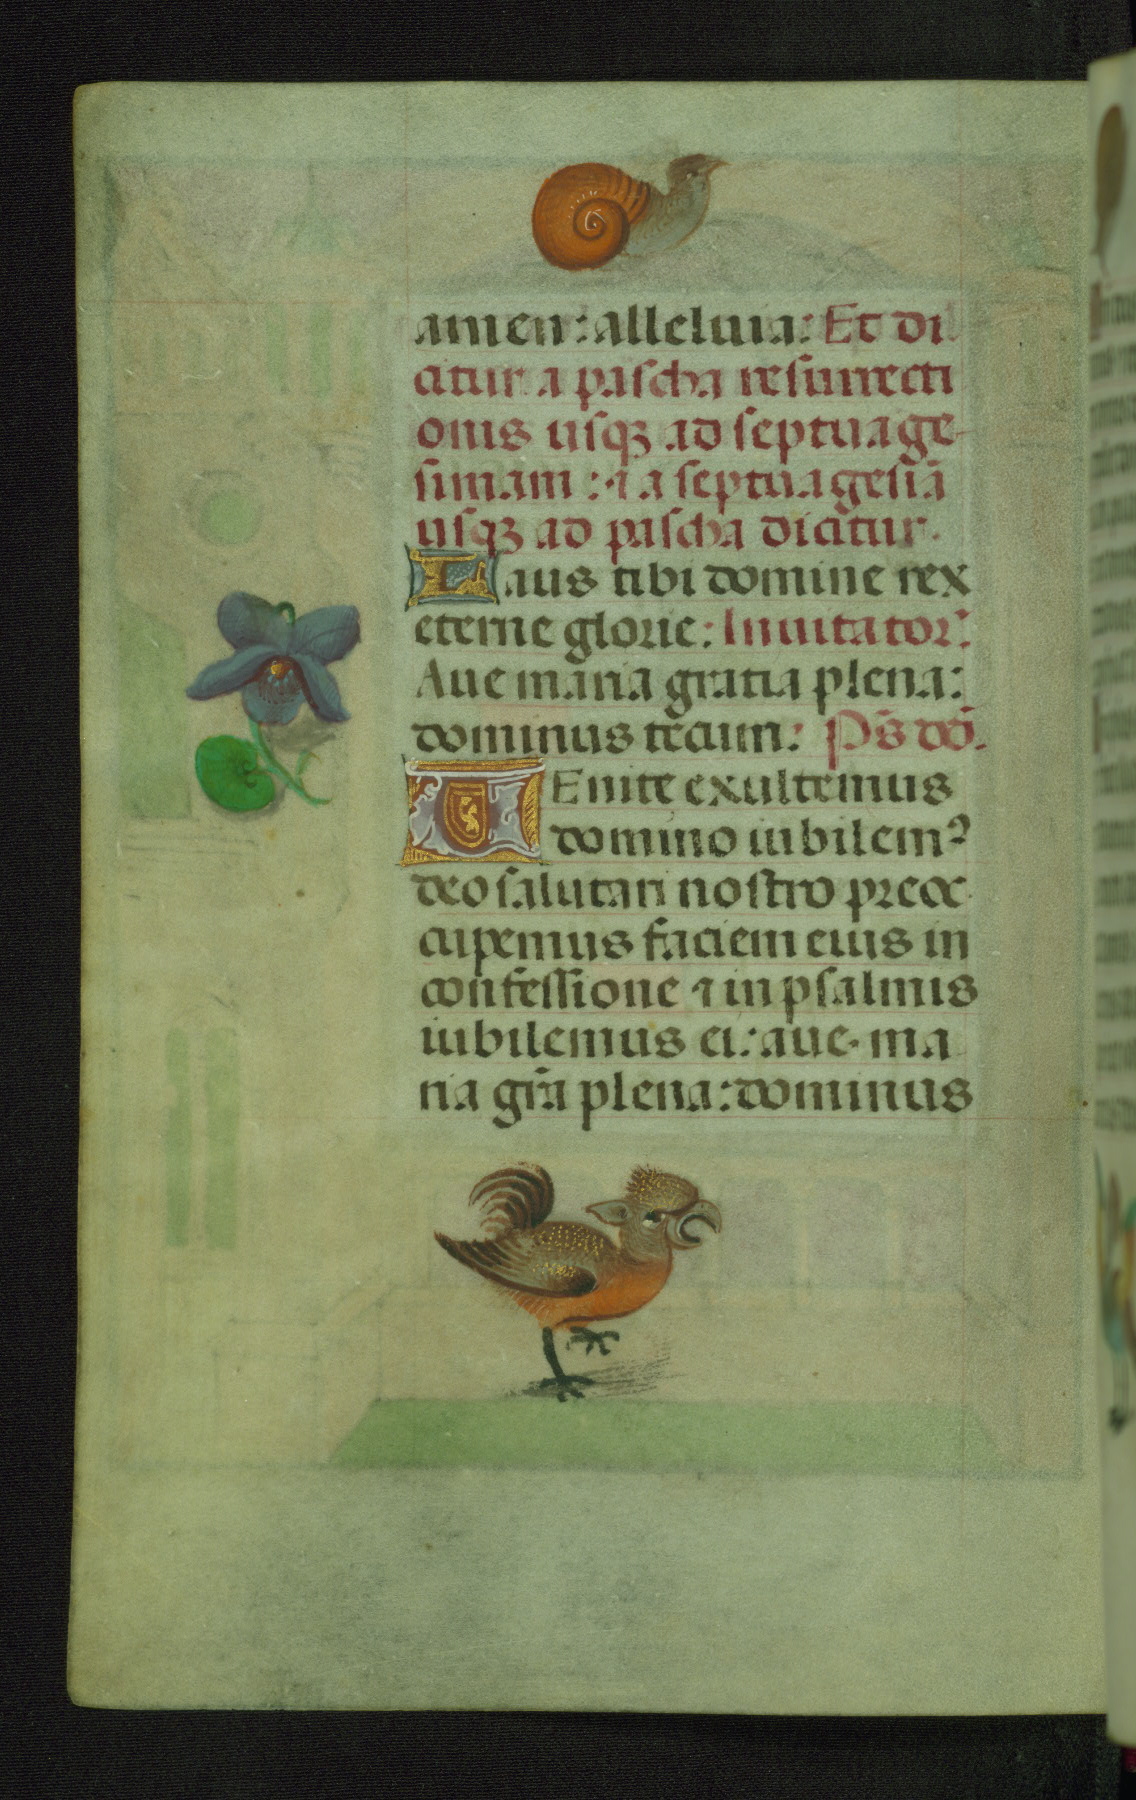 amen: alleluia: Et di
citur a pascha resurrecti
onis usqꝫ ad septuage
simam: ⁊ a septuagesiā
usqꝫ ad pascha dicit̃ur.
Laus tibi domine rex
eterne glorie: Inuitator̃:
Aue maria gratia plena:
dominus tecum: P̃s dd̃.
VEnite exultemus
domino iubilemꝰ
deo salutari nostro preoc
cupemus faciem eius in
confessione ⁊ in psalmis
iubilemus ei: aue ma
ria gr̃a plena: dominus